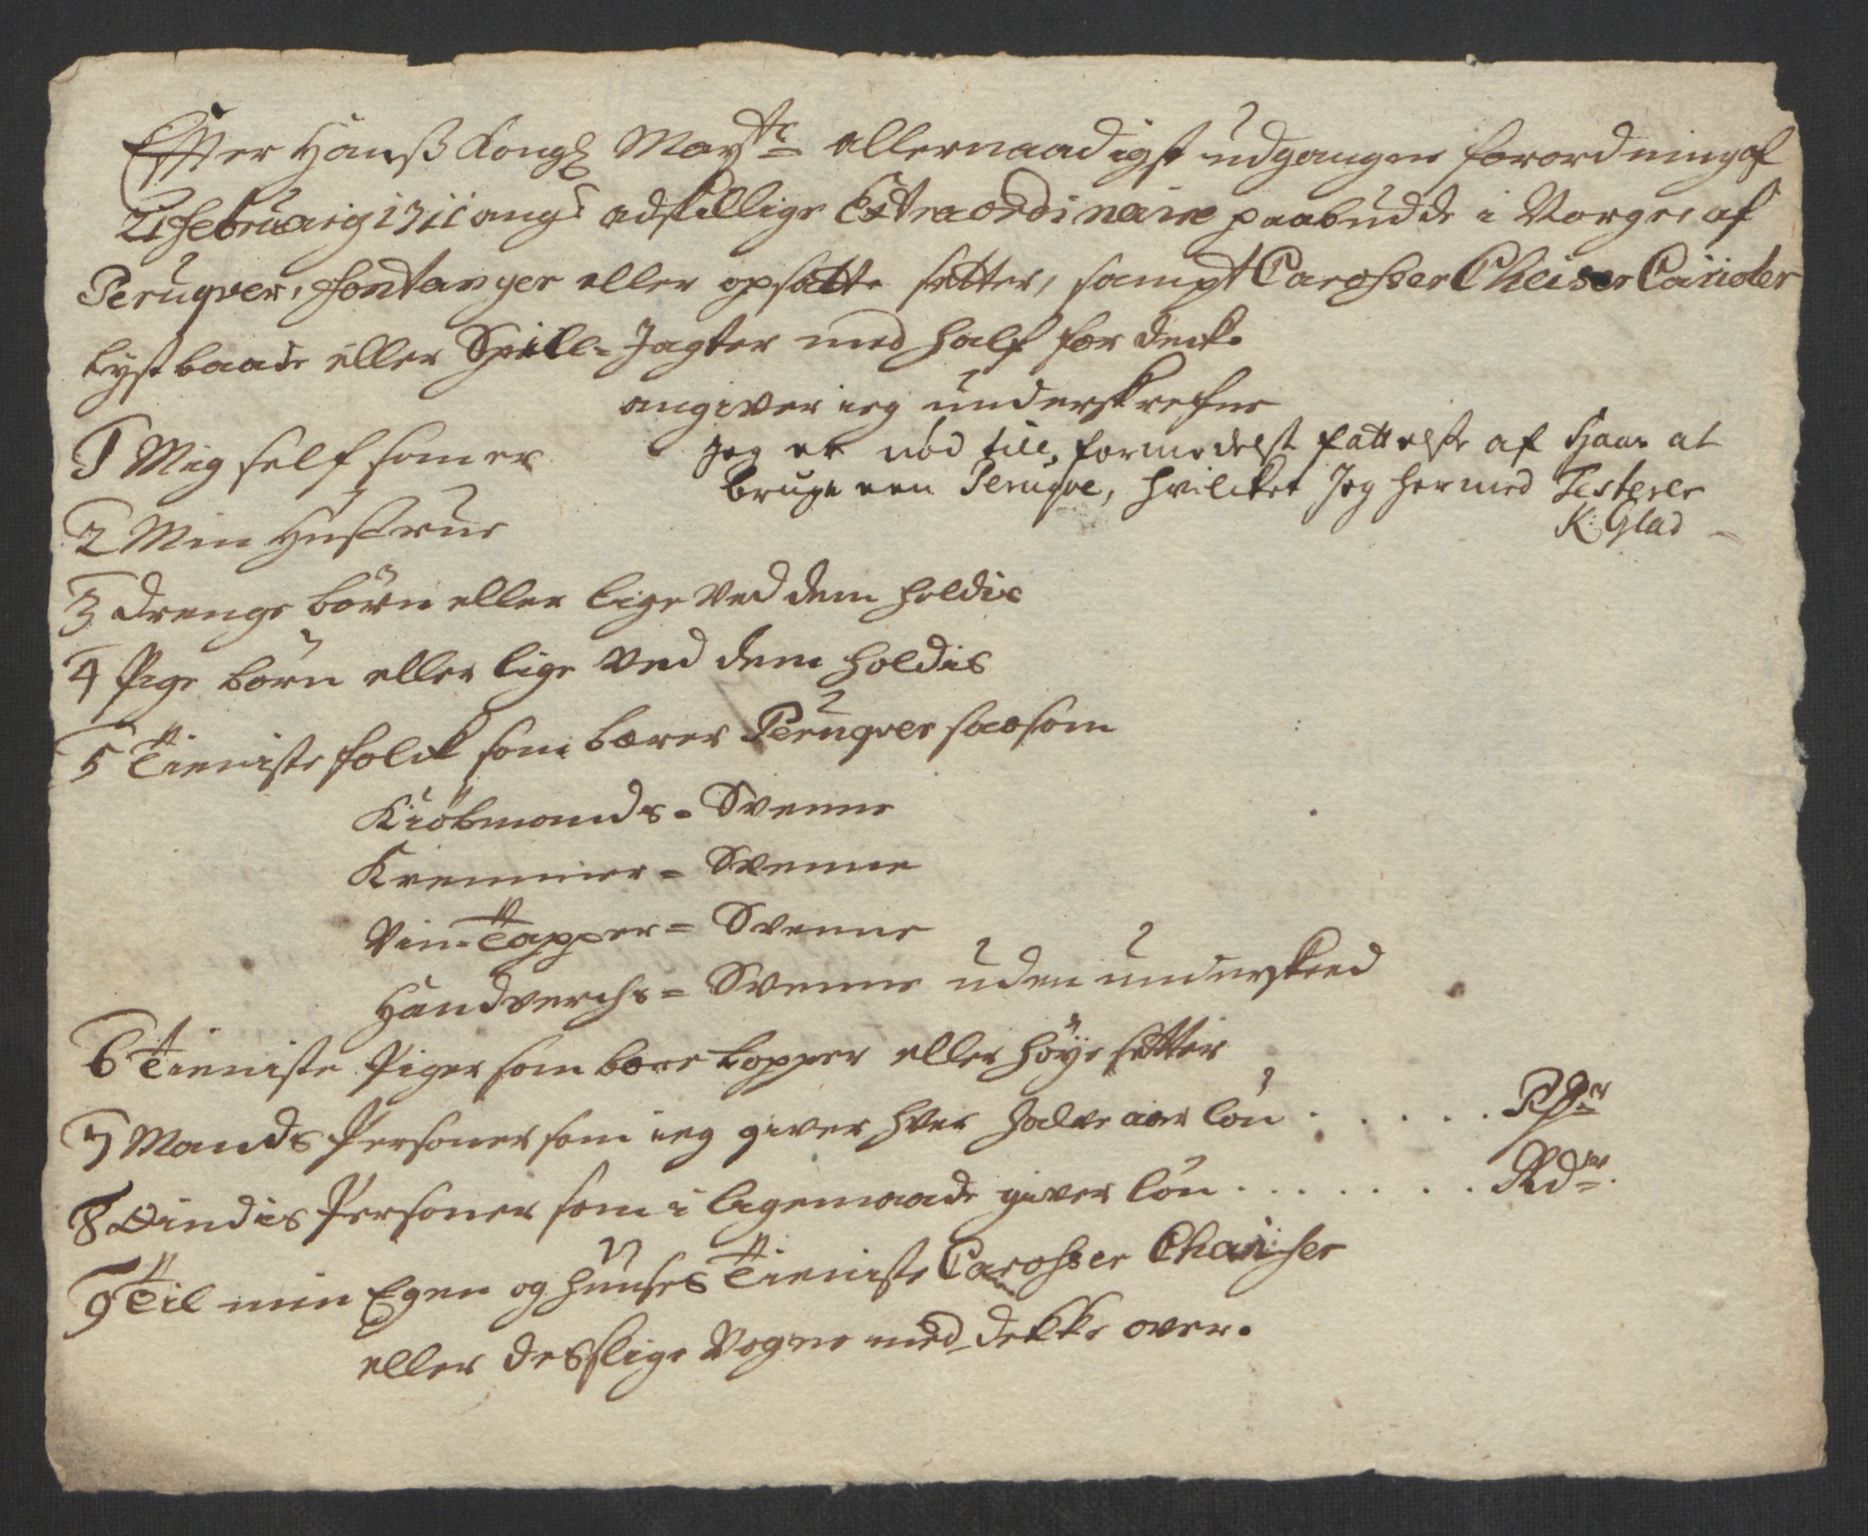 Effter Hanß Kongl May.ts allernaadigst udgangne forordning af
21 februarij 1711 angd adskillige Extraordinaire paabudde i Norge, af
Peruqver, fontanger eller opsatte setter, sampt Carosser Cheiser Carioler
Lyst baade eller Speill-Jagter med half for deck.
angiver ieg underskrefne
1 Mig self som er
Jeg er nød till, formedelst fattelse af Haar at
bruge een Peruqve, hvilcket Jeg hermed Testerer
K: Glad
2 Min Hustrue
3 Drenge børn eller lige ved dem holdis
4 Pige børn eller lige ved dem holdis
5 Tieniste folck som bærer Peruqver saasom
Kiøbmands-Svenne
Kremmer-Svenne
Vin-Tapper-Svenne
Handverchs-Svenne uden underskeed
6 Tieniste Piger som bære topper eller høye setter
7 Mands Personer som ieg giver hver halve aar løn . . . . . Rdr
8 Qindis Personer som i ligemaade giver løn . . . . . . . Rdr.
9 Til min Egen og huuses Tieniste Carosser Chaiser
eller desslige Vogne med dekke over.